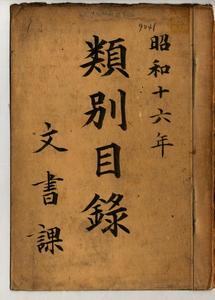 昭和十六年
類別目錄
文書課